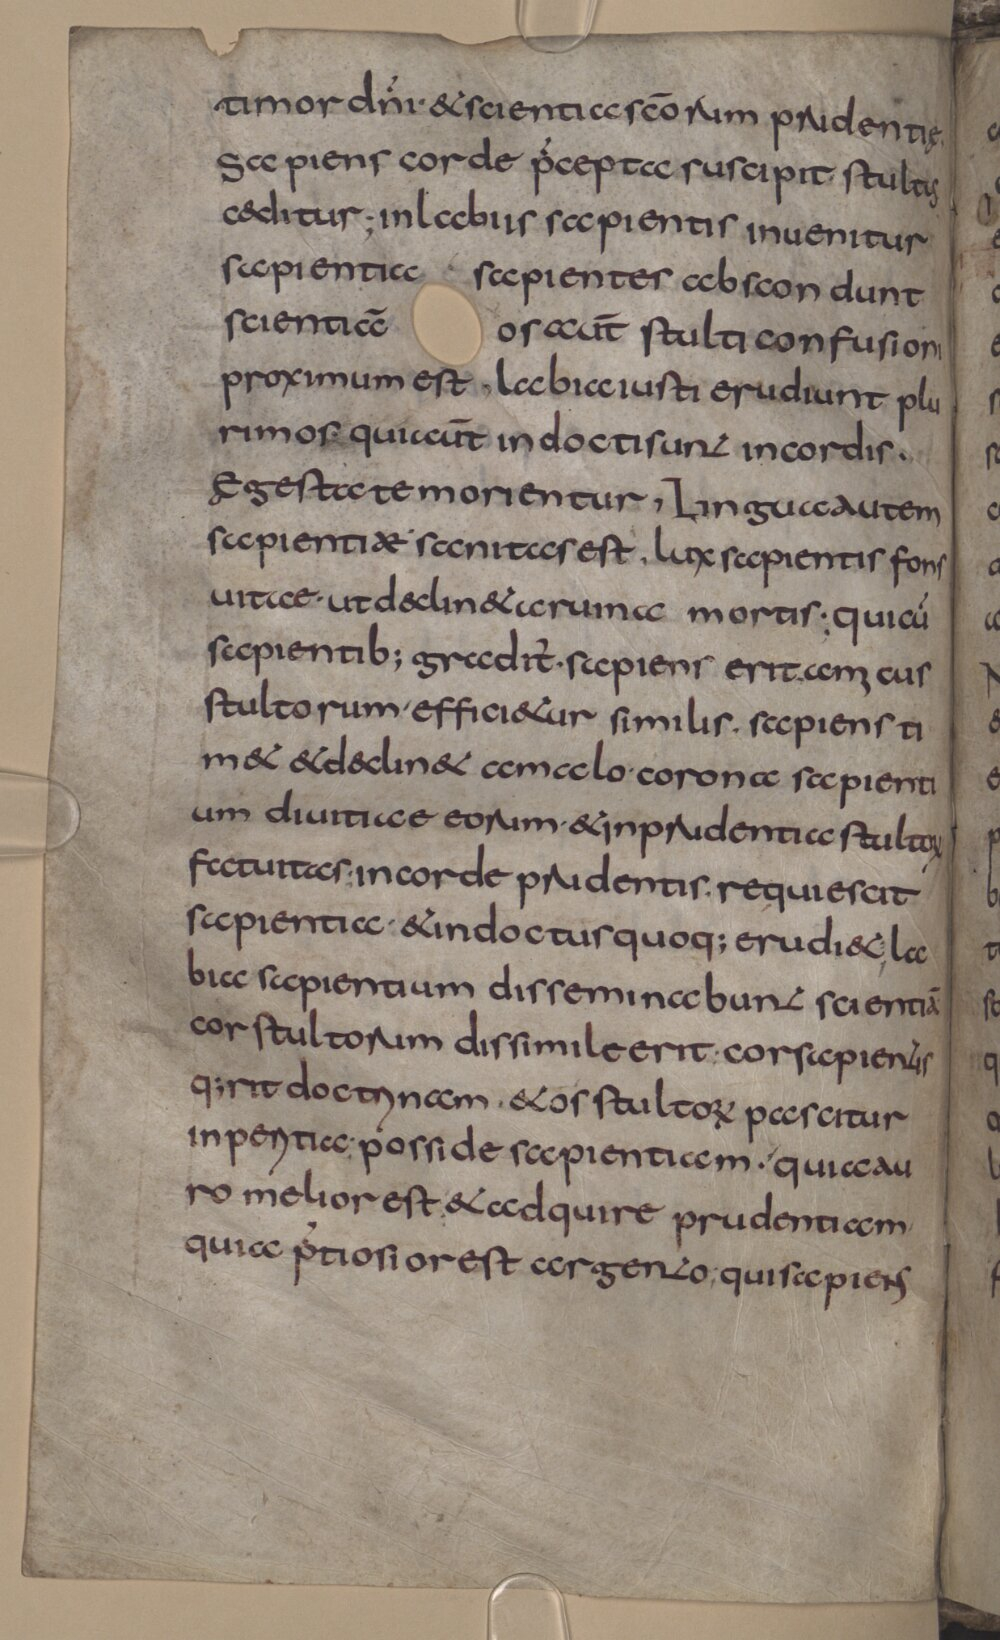 timor dn̄i · & scientia scōrum prudentię.
Sapiens corde p̄cepta suscipit stultis
cęditur ; in labiis sapientis inuenitur
sapientia · sapientes abscondunt
scientiā os aūt stulti confusioni
proximum est , labia iusti erudiunt plu
rimos · qui aūt indocti sunt in cordis .
Egestate morientur , Lingua autem
sapientiæ sanitas est , lux sapientis fons
uitae · ut declin& a ruina mortis ; qui cū
sapientib; gradit̄ · sapiens erit amicus
stultorum efficitur similis . sapiens ti
m& & declin& a malo · corona sapienti
um diuitiae eorum · & inprudentia stultoꝝ
fatuitas ; in corde prudentis . requiescit
sapientia · & indoctus quoq; erudi& , la
bia sapientium disseminabunt scientiā
cor stultorum dissimile erit · cor sapientis
q;rit doctrinam · & os stultoꝝ pascitur
inperitia · posside sapientiam · quia au
ro melior est , & adquire prudentiam
quia p̄tiosior est argento · qui sapiens